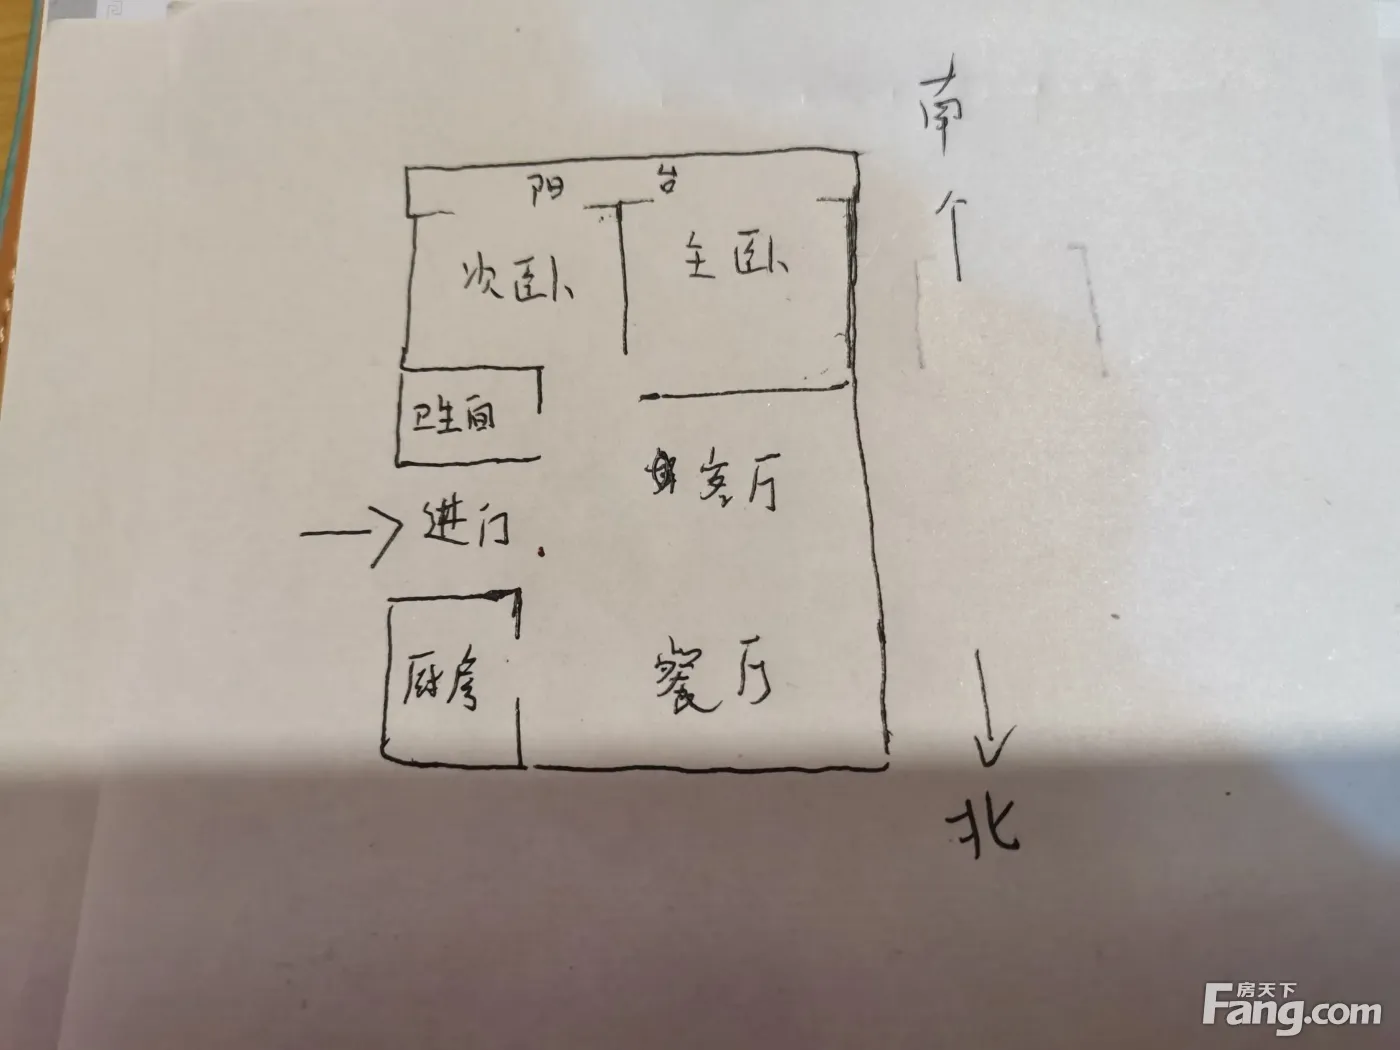 南
阳 台
次卧 主卧
卫生间
客厅
进门
厨房 餐厅
北
房天下
Fang.com